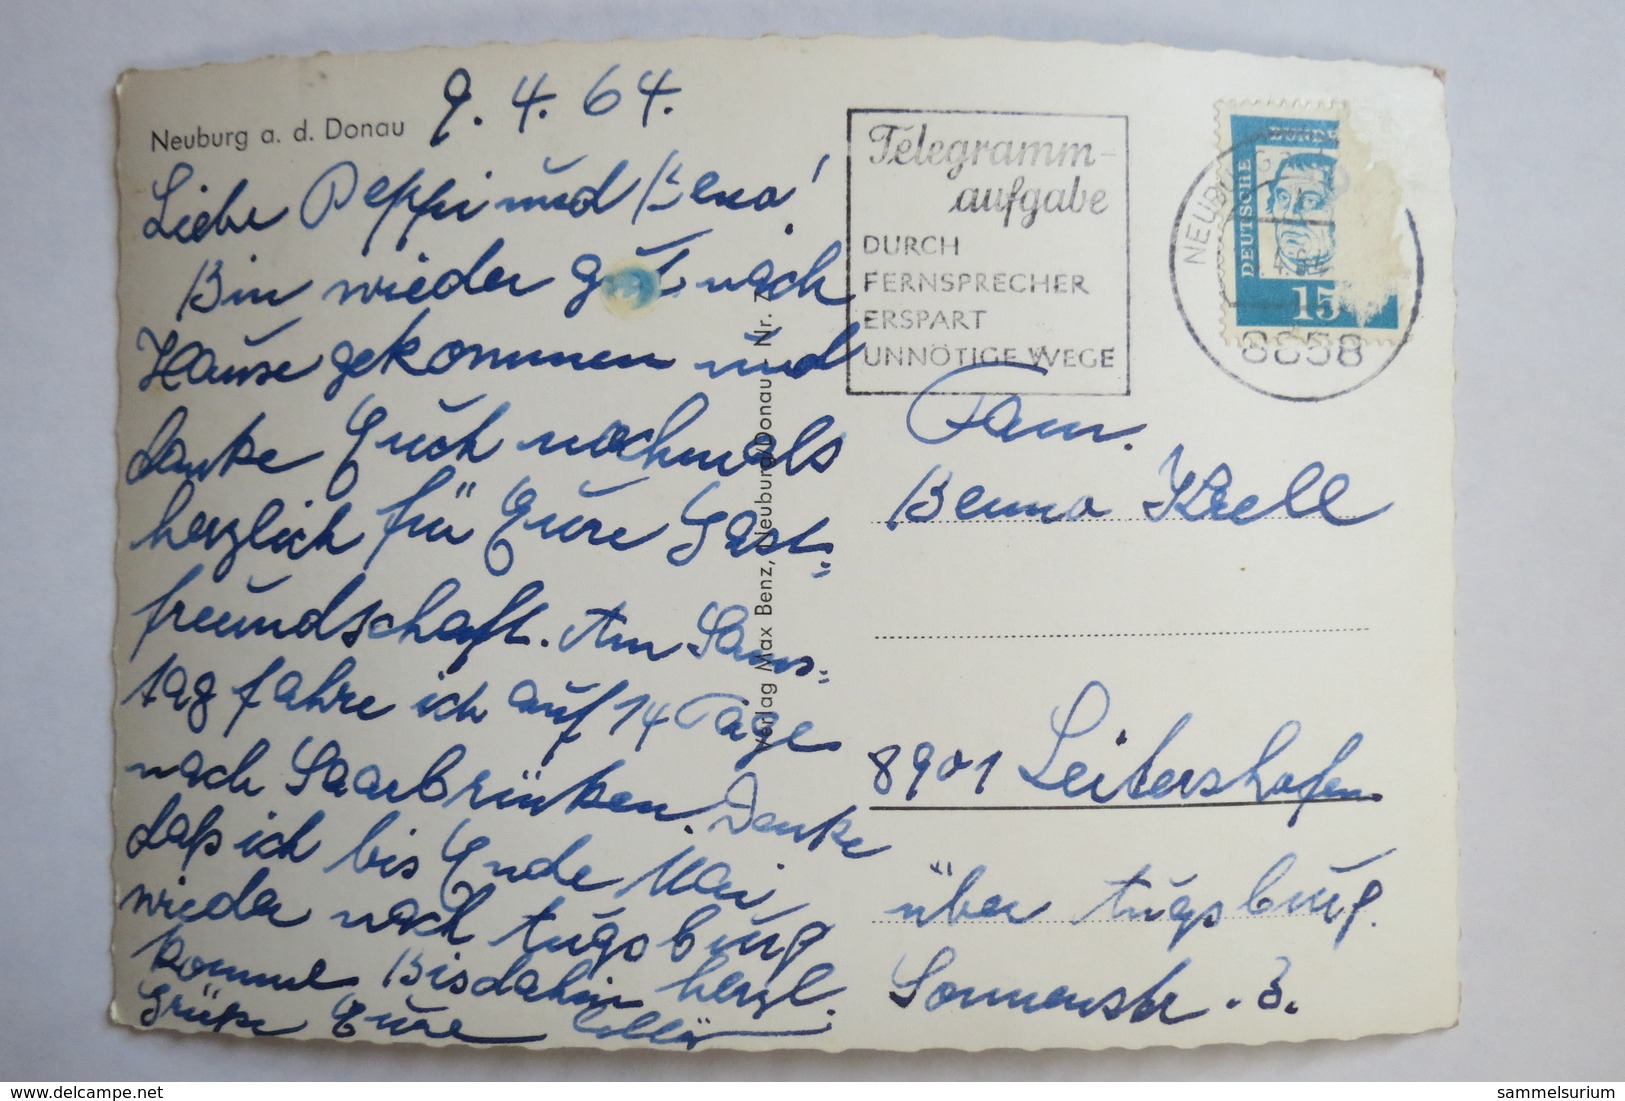 Neuburg a. d. Donau
9. 4. 64.
Liebe Peppi und Bena!
Bin wieder gut nach
Hause gekommen und
danke Euch nochmals
herzlich für Eure Gast-
freundschaft. Am Sams-
tag fahre ich auf 14 Tage
nach Saarbrücken. Denke
daß ich bis Ende Mai
wieder nach Augsburg
komme. Bisdahin herzl.
Grüße Eure
Verlag Max Benz, Neuburg/Donau Nr. 7
Telegramm-
aufgabe
DURCH
FERNSPRECHER
ERSPART
UNNÖTIGE WEGE
DEUTSCHE
15
8858
Fam.
Benno Krell
8901 Leitershofen
über Augsburg.
Sonnenstr. 3.
sammelsurium
delcampe.net